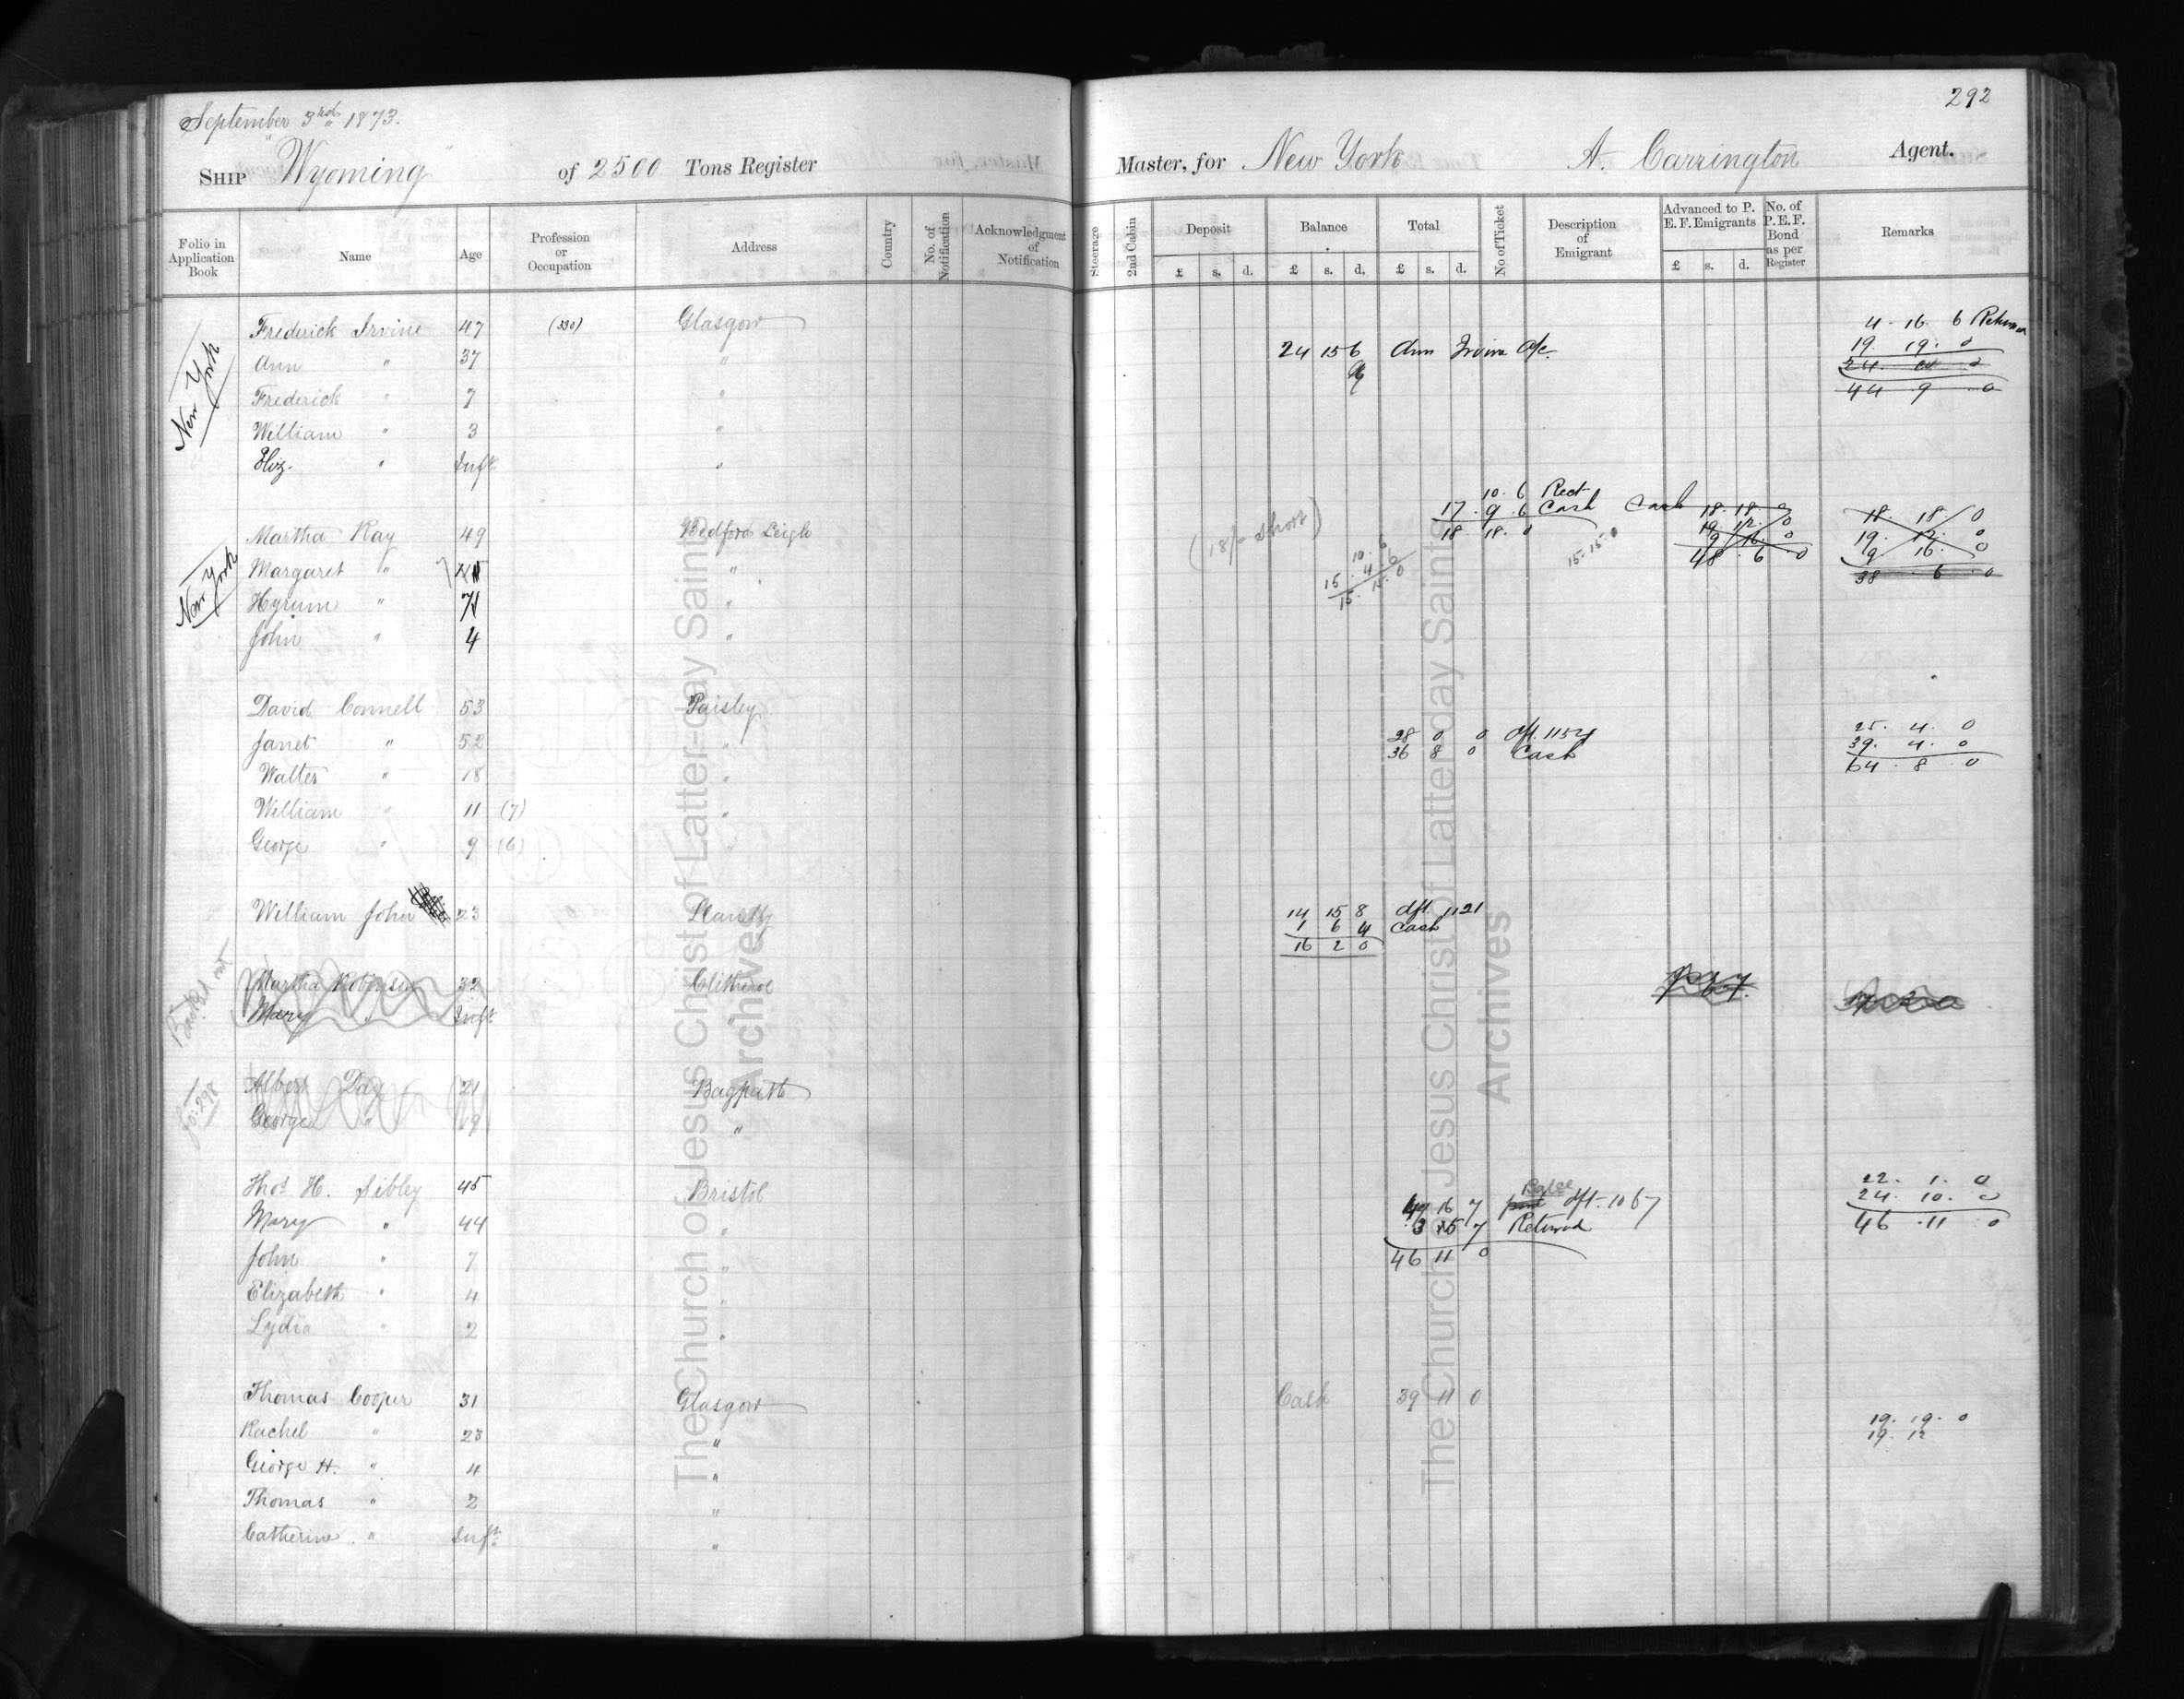 September 3rd 1873.
292
SHIP Wyoming of 2500 Tons Register
Master, for New York A. Carrington Agent.
Folio in Application Book Name Age Profession or Occupation Address Country No. of Notification Acknowledgment of Notification
Steerage 2nd Cabin Deposit Balance Total No of Ticket Description of Emigrant Advanced to P. E. F. Emigrants No. of P.E.F. Bond as per Register Remarks
£ s. d. £ s. d. £ s. d. £ s. d.
New York
Frederick Irvine 47 (330) Glasgow 4 . 16 . 6
Ann " 37 " 24 15 6 Ann Irvine a/c 19 . 19 . 0
Frederick " 7 " 44 9 0
William " 3 "
Eliz. " Inft "
10 . 6 Rect
17 . 9 . 6 Cash Cash 18 . 18 . 0 18 . 18 / 0
New York
Martha Ray 49 Bedford Leigh (18/- Short) 18 18 . 0 15 . 15 . 0 19 . 12 . 0 19 . 12 . 0
Margaret " " 10 . 6 9 . 16 . 0 9 16 . 0
15 . 4 . 6 48 . 6 . 0 38 . 6 . 0
15 . 15 . 0
Hyrum " "
John " 4 "
David Connell 53 Paisley 25 . 4 . 0
Janet " 52 " 28 0 0 dft. 1154 39 . 4 . 0
36 8 0 Cash 64 . 8 . 0
Walter " 18 "
William " 11 (7) "
George " 9 (6)
William John 23 Llanelly 14 15 8 dft. 1121
1 6 4 Cash
16 2 0
Martha Robinson 32 Clitheroe
Mary " Inft "
fo: 298
Albert Day 21 Bagpath
George " 19 "
Thos H. Sibley 45 Bristol 22 . 1 . 0
47 16 7 dft. 1067 24 . 10 . 0
Mary " 44 " 3 15 7 Returned 46 . 11 0
John " 7 " 46 11 0
Elizabeth " 4 "
Lydia " 2 "
Thomas Cooper 31 Glasgow Cash 39 11 0
Rachel " 23 " 19 . 19 . 0
19 . 12
George H. " 4 "
Thomas " 2 "
Catherine . " Inft "
The Church of Jesus Christ of Latter-day Saints
Archives
The Church of Jesus Christ of Latter-day Saints
Archives